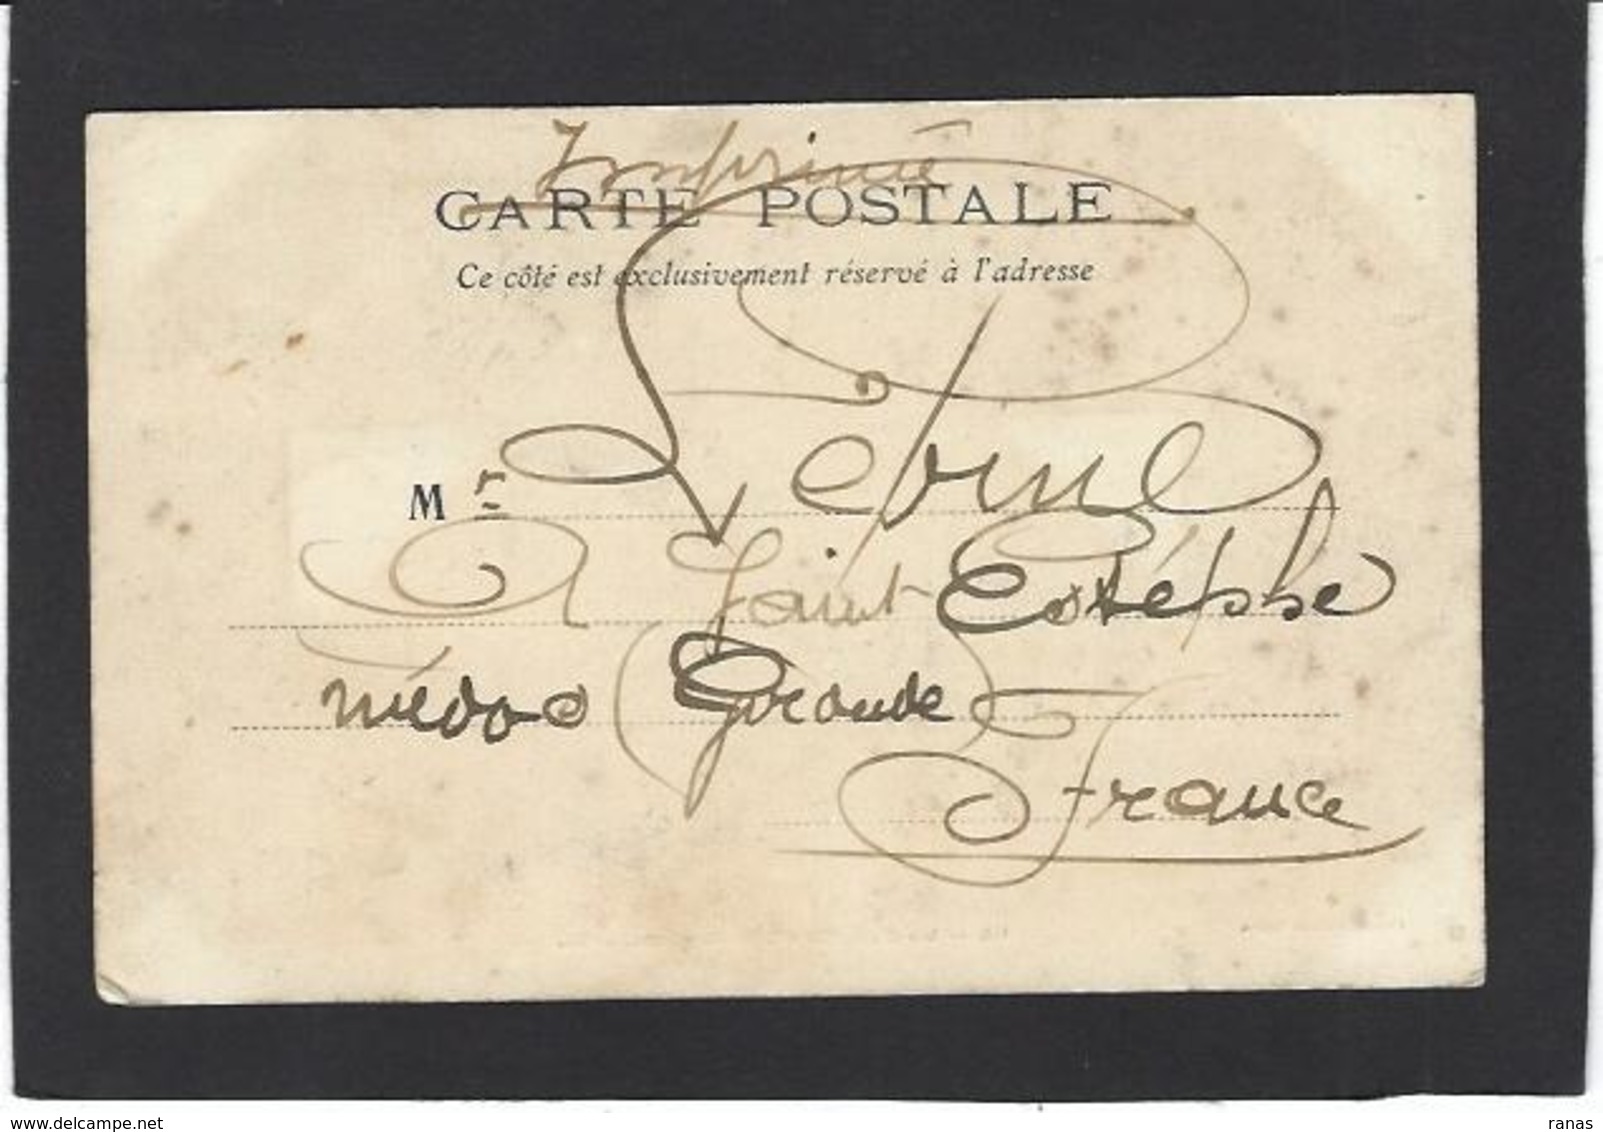 Imprimé
CARTE POSTALE
Ce côté est exclusivement réservé à l'adresse
Mr
A Saint Estèphe
Médoc Gironde
France
www.delcampe.net
ranas